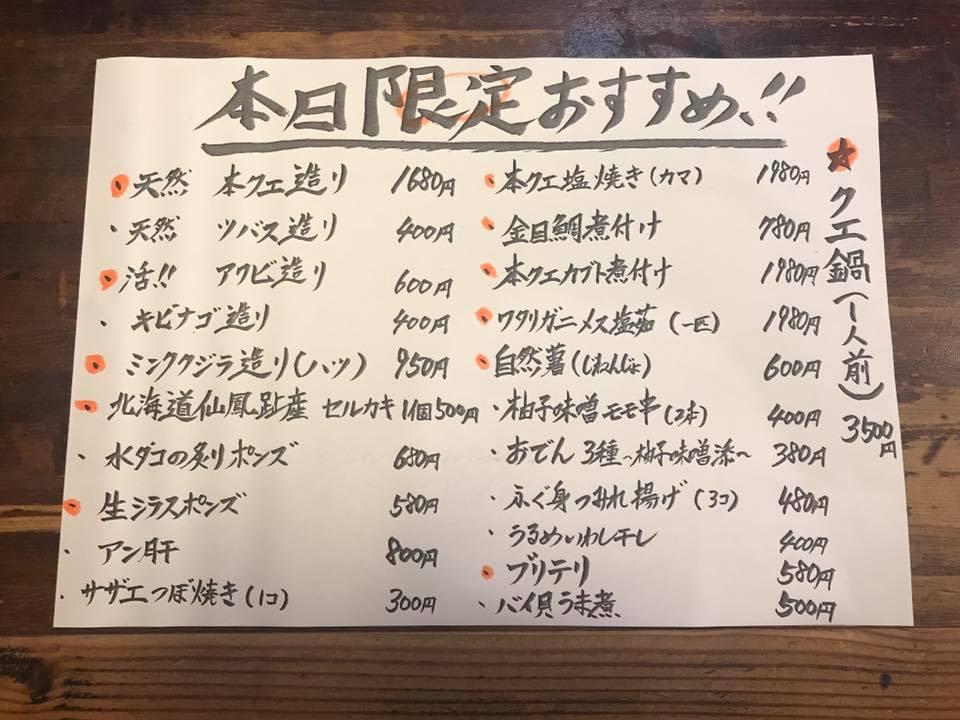 本日限定おすすめ!!
・天然 本クエ造り 1680円
・天然 ツバス造り 400円
・活!! アワビ造り 600円
・キビナゴ造り 400円
・ミンククジラ造り(ハツ) 950円
・北海道仙鳳趾産 セルカキ 1個500円
・水ダコの炙りポンズ 680円
・生シラスポンズ 580円
・アン肝 800円
・サザエつぼ焼き(1コ) 300円
・本クエ塩焼き(カマ) 1980円
・金目鯛煮付け 780円
・本クエカブト煮付け 1980円
・ワタリガニメス塩茹(一匹) 1980円
・自然薯(じねんじょ) 600円
・柚子味噌モモ串(2本) 400円
・おでん3種〜柚子味噌添〜 380円
・ふぐ身つみれ揚げ(3コ) 480円
・うるめいわし干し 400円
・ブリテリ 580円
・バイ貝うま煮 500円
★クエ鍋(一人前) 3500円